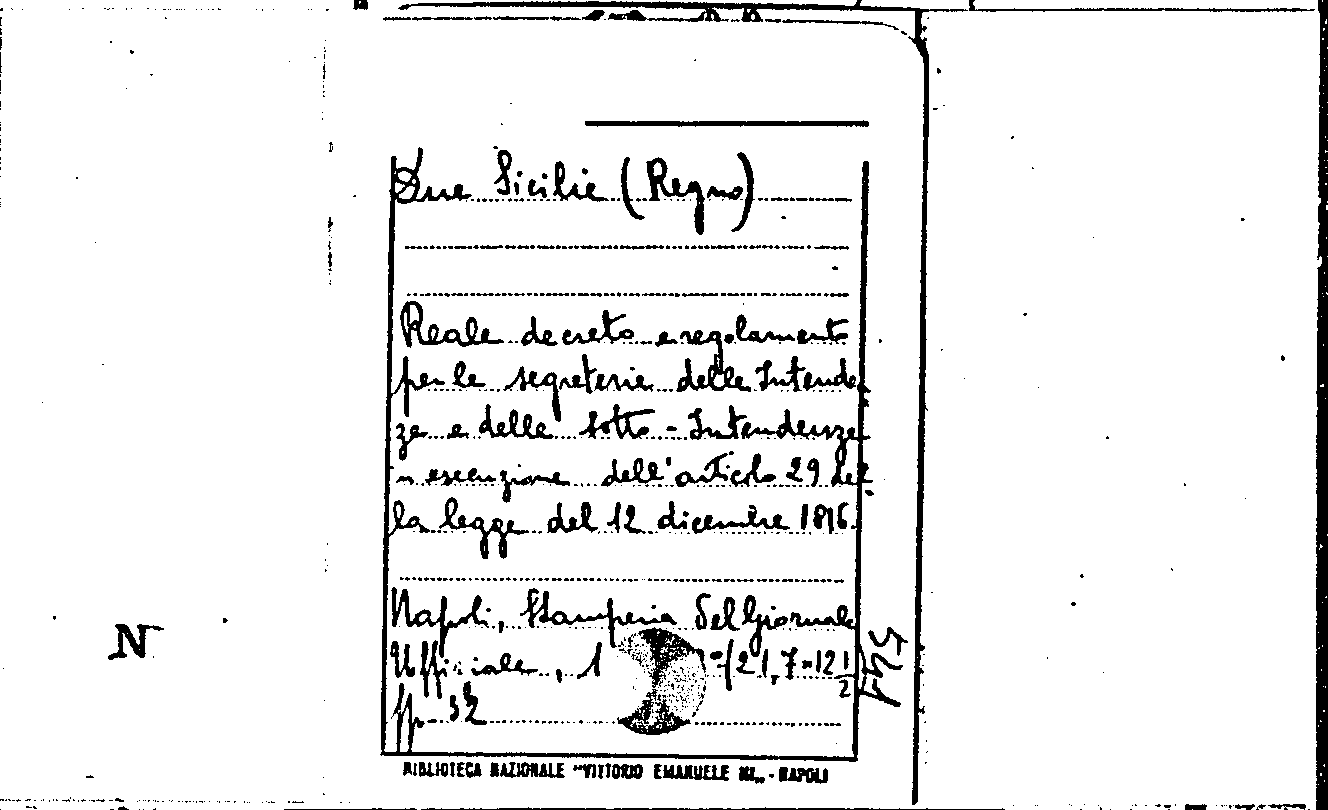 Due Sicilie (Regno)
Reale decreto e regolamento
per le segreterie delle Intenden
ze e delle sotto-Intendenze
in esecuzione dell'articolo 29 del
la legge del 12 dicembre 1816.
Napoli, Stamperia del Giornale
Ufficiale, 1
(21,7×12 1/2
pp. 32
N
BIBLIOTECA NAZIONALE "VITTORIO EMANUELE III" - NAPOLI